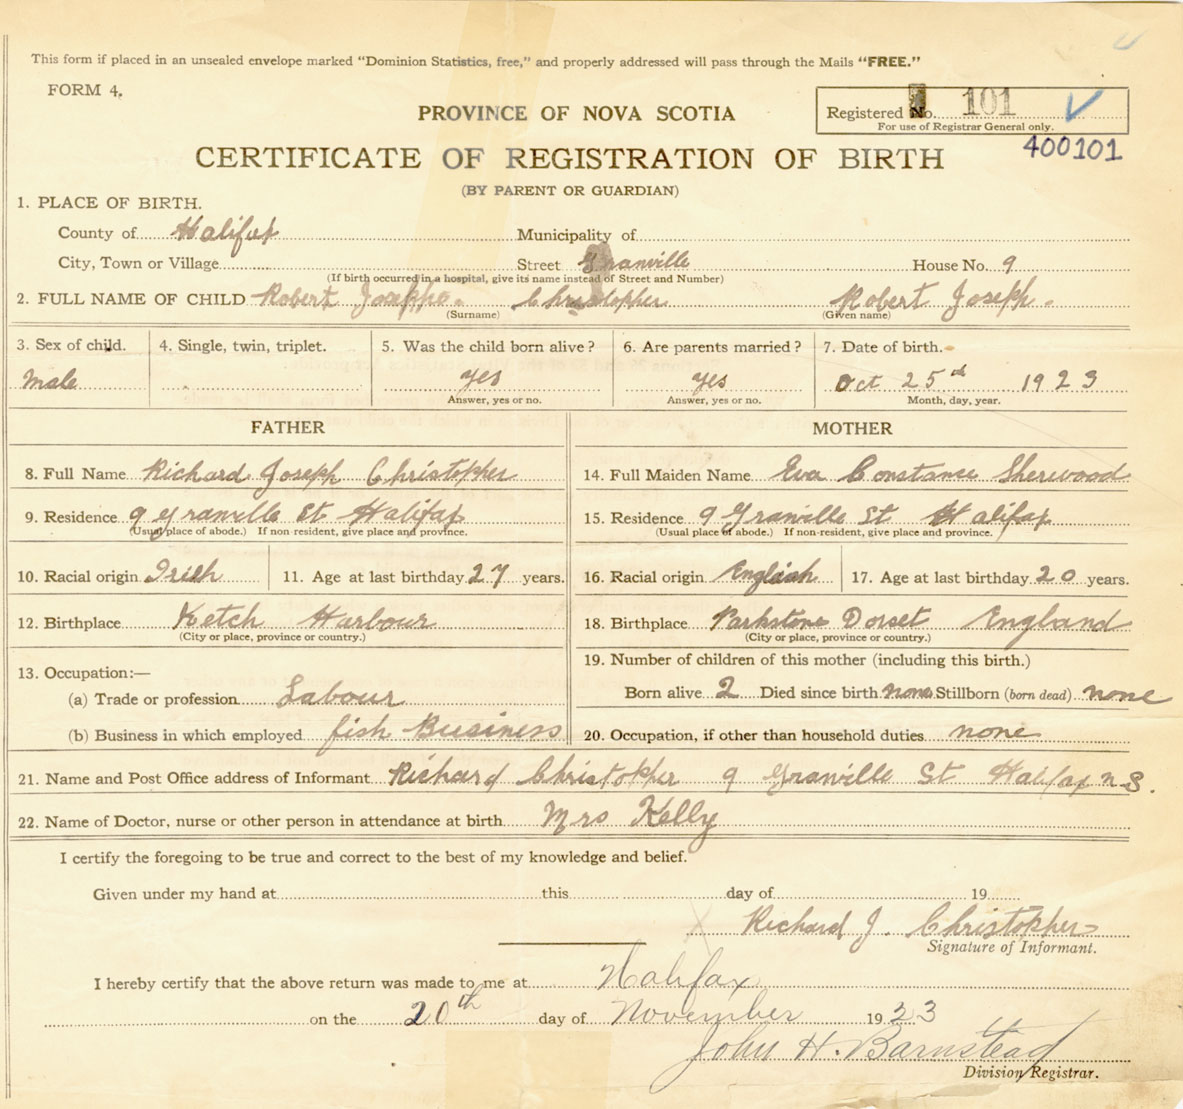 This form if placed in an unsealed envelope marked "Dominion Statistics, free," and properly addressed will pass through the Mails "FREE."
FORM 4.
PROVINCE OF NOVA SCOTIA
Registered No. 101
For use of Registrar General only.
400101
CERTIFICATE OF REGISTRATION OF BIRTH
(BY PARENT OR GUARDIAN)
1. PLACE OF BIRTH.
County of Halifax Municipality of
City, Town or Village Street Granville House No. 9
(If birth occurred in a hospital, give its name instead of Street and Number)
2. FULL NAME OF CHILD Robert Josephe. Christopher Robert Joseph.
(Surname) (Given name)
3. Sex of child. 4. Single, twin, triplet. 5. Was the child born alive? 6. Are parents married? 7. Date of birth.
Male yes yes Oct 25th 1923
Answer, yes or no. Answer, yes or no. Month, day, year.
FATHER MOTHER
8. Full Name Richard Joseph Christopher 14. Full Maiden Name Eva Constance Sherwood
9. Residence 9 Granville St Halifax 15. Residence 9 Granville St Halifax
(Usual place of abode.) If non-resident, give place and province. (Usual place of abode.) If non-resident, give place and province.
10. Racial origin Irish 11. Age at last birthday 27 years. 16. Racial origin English 17. Age at last birthday 20 years.
12. Birthplace Ketch Harbour 18. Birthplace Parkstone Dorset England
(City or place, province or country.) (City or place, province or country.)
13. Occupation:— 19. Number of children of this mother (including this birth.)
(a) Trade or profession Labour Born alive 2 Died since birth none Stillborn (born dead) none
(b) Business in which employed fish Business 20. Occupation, if other than household duties none
21. Name and Post Office address of Informant Richard Christopher 9 Granville St Halifax n S.
22. Name of Doctor, nurse or other person in attendance at birth Mrs Kelly
I certify the foregoing to be true and correct to the best of my knowledge and belief.
Given under my hand at this day of 19
X Richard J. Christopher
Signature of Informant.
I hereby certify that the above return was made to me at Halifax
on the 20th day of November 1923
John H. Barnstead
Division Registrar.